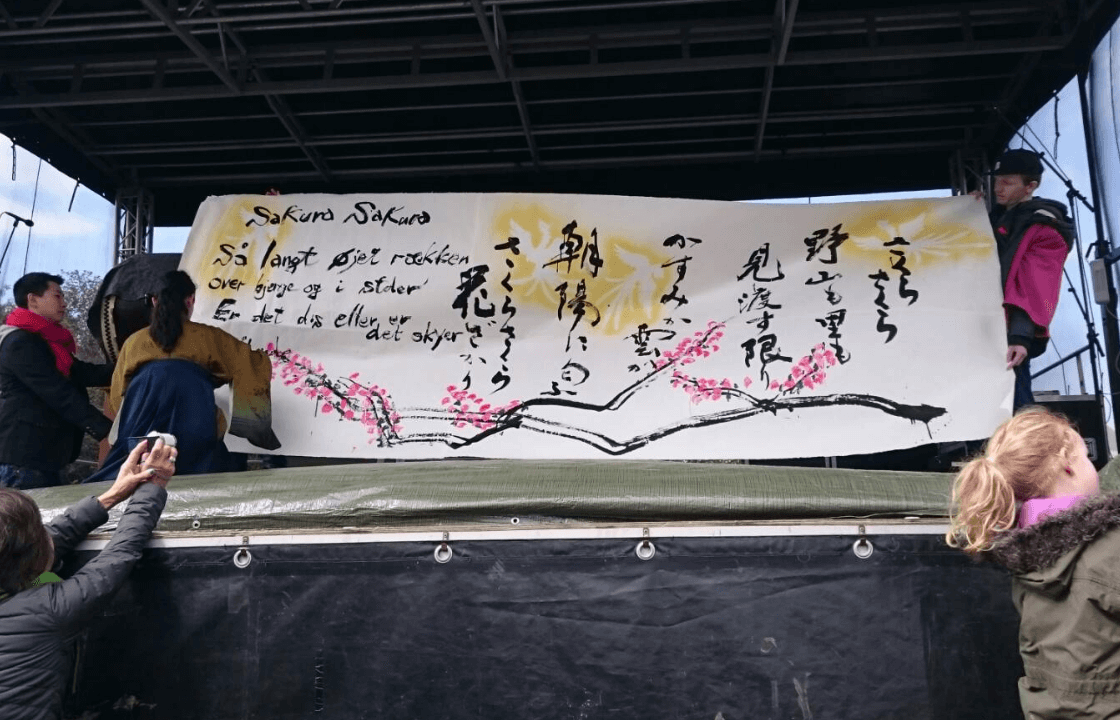 Sakura Sakura
Så langt øjet rækken
over bjerge og i
Er det dis eller er
det skyer
さくら
さくら
野山も里も
見渡す限り
かすみか
雲か
朝陽に匂ふ
さくらさくら
花ざかり